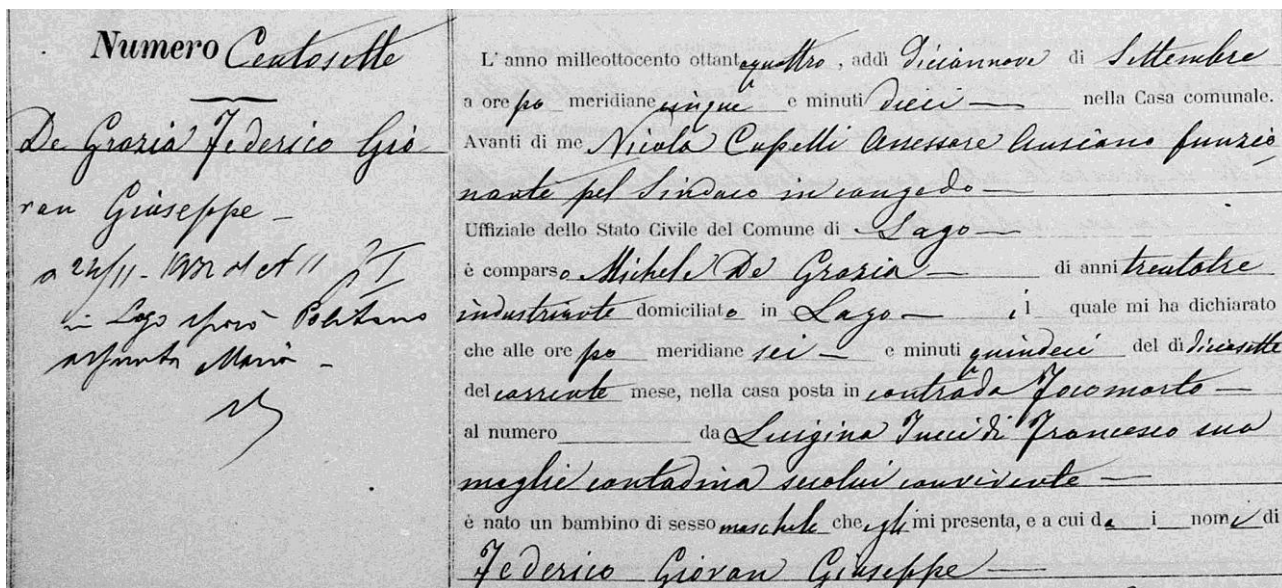 Numero Centosette
De Grazia Federico Gio
van Giuseppe -
a 24/11 - 1932
in Lago sposò Politano
Assunta Maria -
L' anno milleottocento ottantaquattro, addì diciannove di Settembre
a ore po meridiane cinque e minuti dieci — nella Casa comunale.
Avanti di me Nicola Cupelli Assessore Anziano funzio
nante pel Sindaco in congedo —
Uffiziale dello Stato Civile del Comune di Lago —
è comparso Michele De Grazia — di anni trentatre
industriante domiciliato in Lago — il quale mi ha dichiarato
che alle ore po meridiane sei — e minuti quindeci del dì diciasette
del corrente mese, nella casa posta in contrada
al numero da Luigina Tucci di Francesco sua
moglie contadina secolui convivente —
è nato un bambino di sesso maschile che egli mi presenta, e a cui dà i nomi di
Federico Giovan Giuseppe —